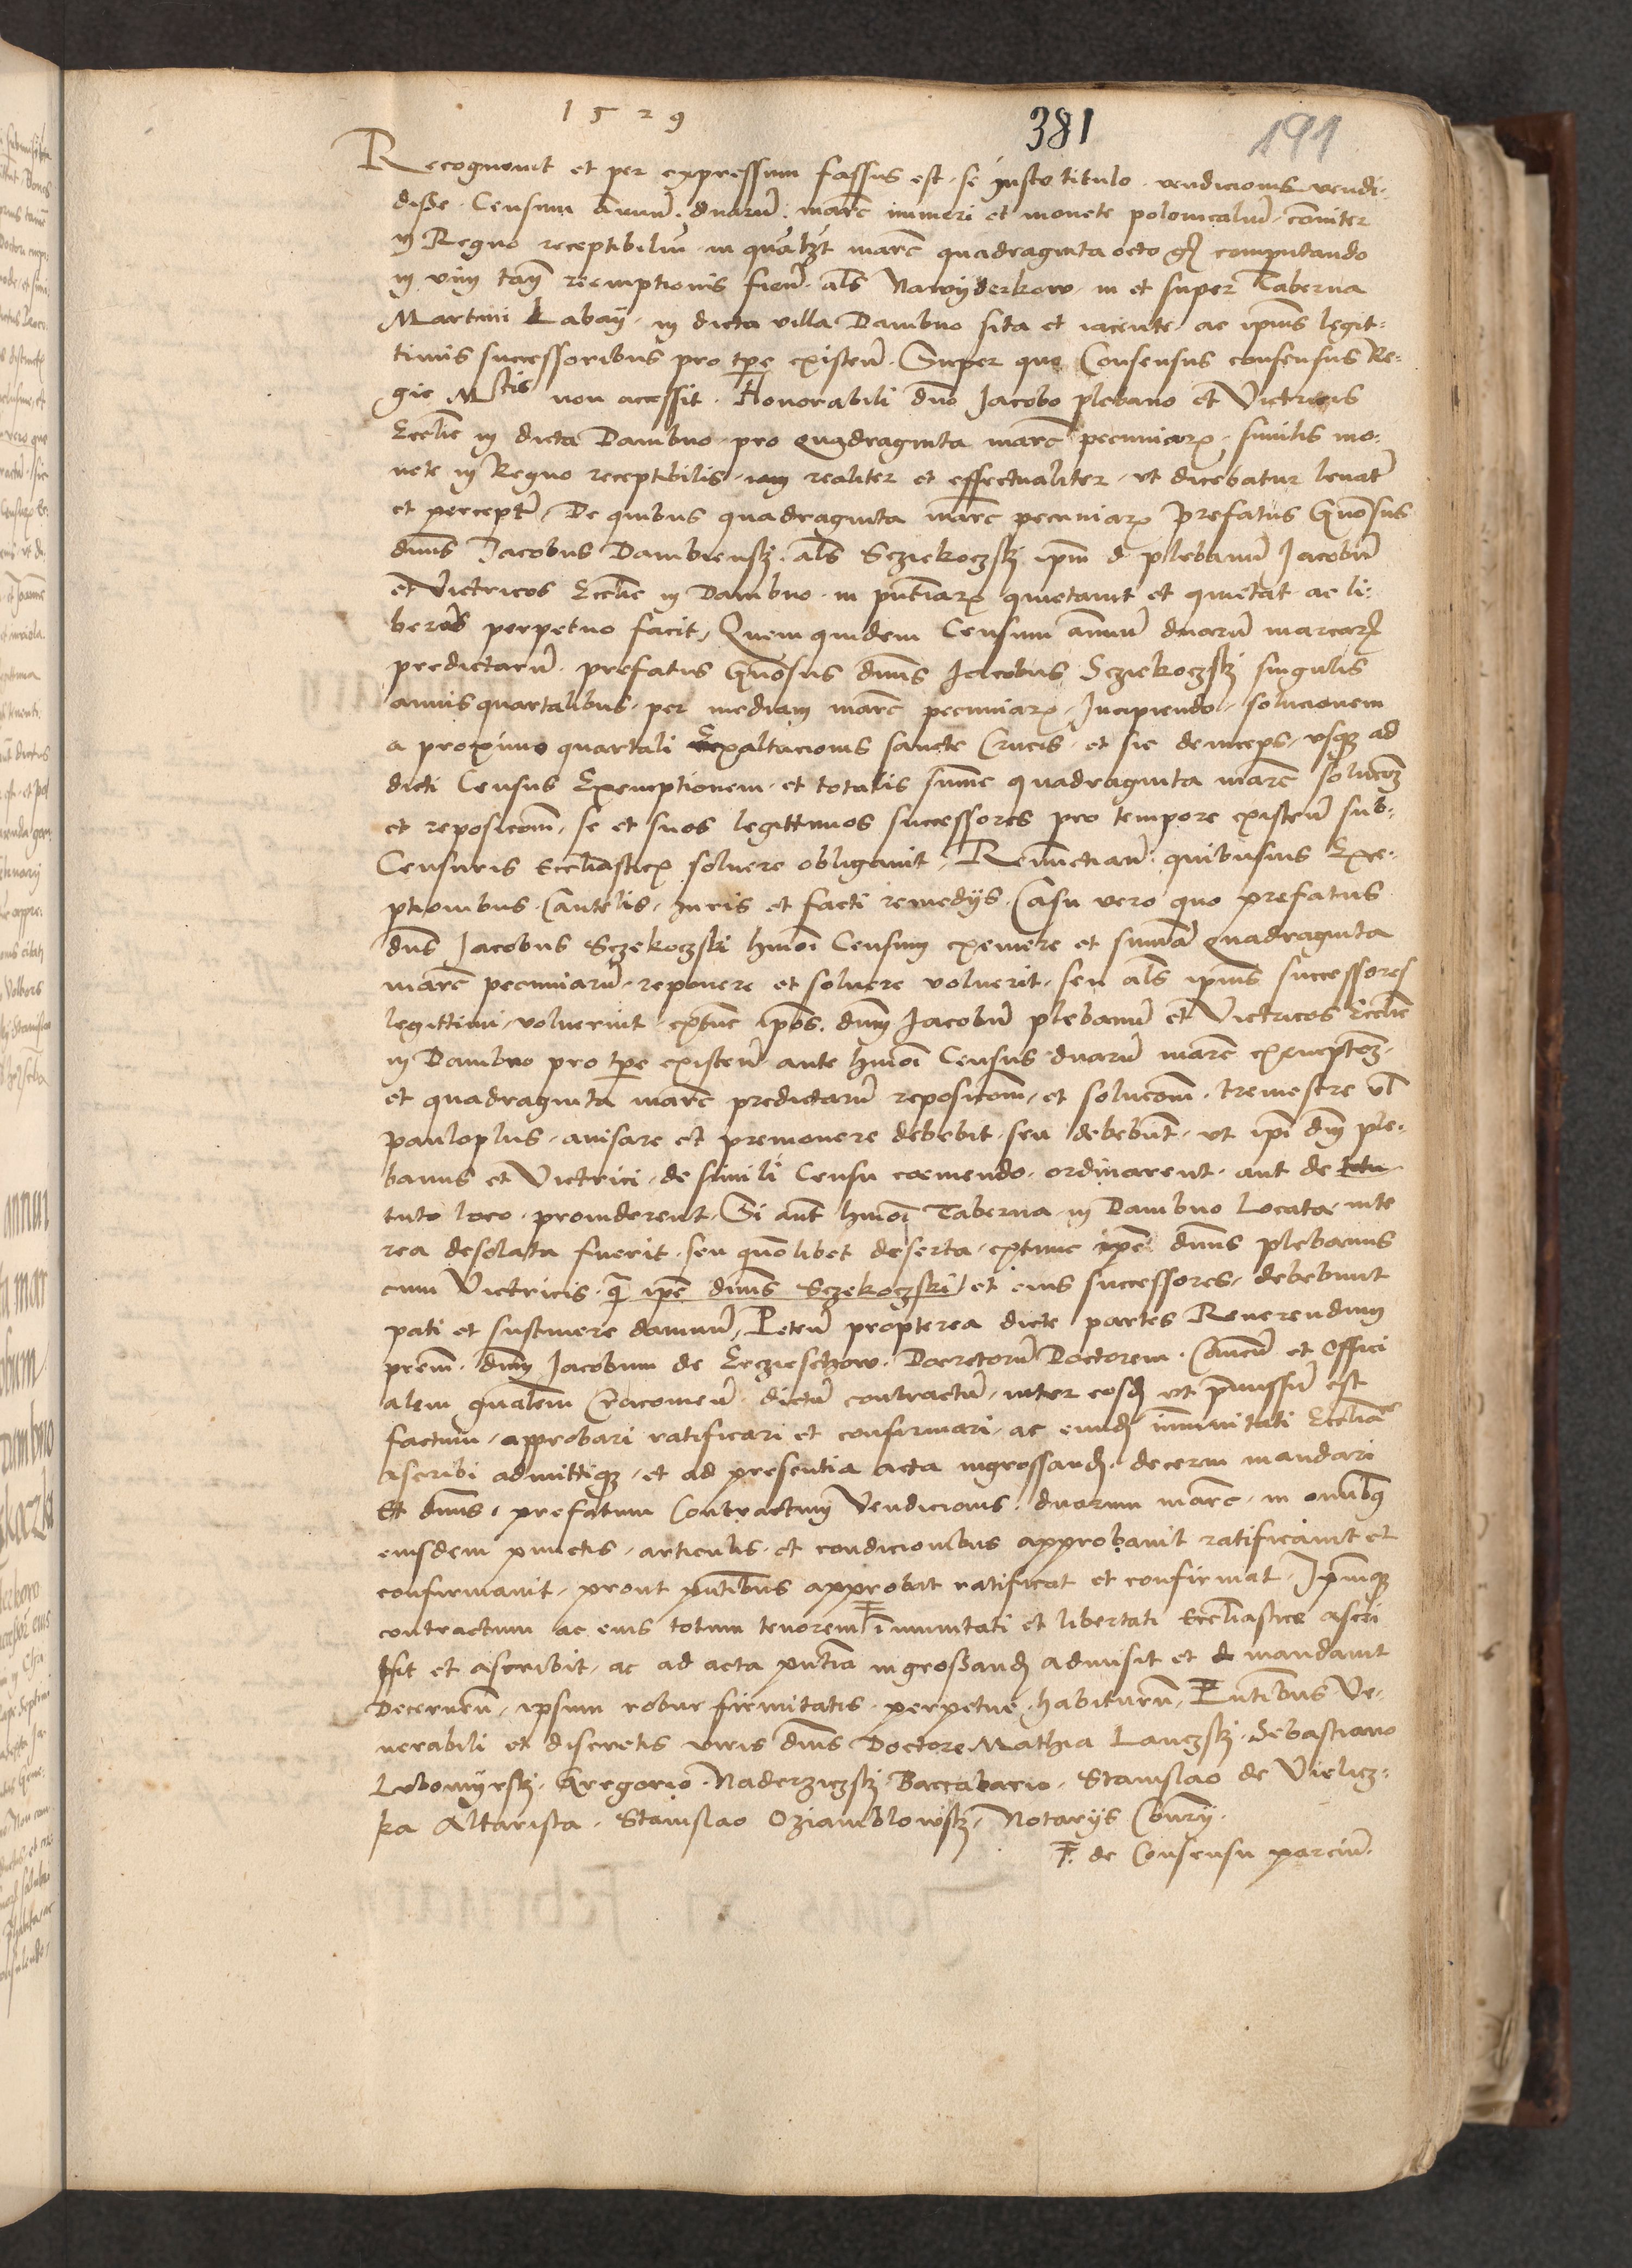 1529
381
191
Recognovit et per expressum fassus est se iusto titulo vendicionis vendi-
disse Censum annuū duarū marc numeri et monete polonicaliū coīiter
in Regno receptibiliū in qualzt marc quadraginta octo gr computando
in vim tm̄ reemptionis fienɗ als Nawyderkow in et super Taberna
Martini Labay in dicta villa Dambno sita et iacente ac ipius legit-
timis successoribus pro tpe existeñ Super quo Consensus consensus Re-
gie Mtis non accessit Honorabili dno Jacobo plebano et Victricis
Ecclie in dicta Dambno pro quadraginta marc pecuniarꝝ similis mo-
nete in Regno receptibilis iam realiter et effectualiter ut dicebatur levat
et percept De quibus quadraginta marc pecuniarꝝ prefatus Gnosus
dnus Jacobus Dambiensky als Szczekoczsky ipm d plebanū Jacobū
et Victricos Ecclie in Dambno in pntiarꝝ quietavit et quietat ac li-
beros perpetuo facit Quemquidem Censum annuū duarū marcarꝝ
predictarū prefatus Gnosus dnus Jacobus Sczekoczsky singulis
annis quartalibus per mediam marc pecuniarꝝ Incipiendo solucionem
a proximo quartali Exaltacionis sancte Crucis et sic deinceps usqꝫ ad
dicti Census Exempcionem et totalis sūme quadraginta marc solucoem
et reposicom se et suos legittimos successores pro tempore existeñ sub
Censuris eccliasticꝭ solvere obligavit Renunctianɗ quibusvis Exce-
ptionibus Cautelis Iuris et facti remedys Casu vero quo prefatus
dns Jacobus Sczekoczski hmoi Censum exemere et sūmā quadraginta
marc pecuniarū reponere et solvere voluerit seu als ipius successores
legittimi voluerint extunc ipos dnm Jacobū plebanū et Victricos Ecclie
in Dambno pro tpe existeñ ante hmoi Census duarū marc exempcoem
et quadraginta marc predictarū reposicom et solucom tremestre vl
pauloplus avisare et premonere debebit seu debebunt ut ipi dni ple-
banus et Victrici de simili Censu coemendo ordinarent aut de totu
tuto loco providerent Si aut hmoi Taberna in Dambno locata inte
rea desolata fuerit seu quolibet deserta extunc ipe dnus plebanus
cum Victricis q̄ ipe dnus Sczekoczski et eius successores debebunt
pati et sustinere damnū Peteñ propterea dicte partes Reverendum
prem dnm Jacobum de Erczieschow Decretorū Doctorem Canc et Offici
alem gnalem Cracovieñ dictū contractū inter eosɗ ut pmissū est
factum approbari ratificari et confirmari ac eiusɗ imunitati Ecclia
ascribi admittiqꝫ et ad presentia acta ingrossanɗ decerni mandari
Et dnus prefatum Contractum Vendicionis duarum marc in omnibꝫ
eiusdem punctis articulis et condicionibus approbavit ratificavit et
confirmavit prout pntibus approbat ratificat et confirmat Ipmqꝫ
contractum ac eius totum tenorem imunitati et libertati Eccliastice ascri
psit et ascribit ac ad acta pntia ingrossanɗ admisit et de mandavit
Decerneñ ipsum robur firmitatis perpetue habiturū Pntibus Ve-
nerabili et discretis viris dnis Doctore Mathia Lanczsky Sebastiano
Lubomyrsky Gregorio Naderziczsky Baccalario Stanislao de Vielicz-
ka Altarista Stanislao Oziamblowsky Notarys Cōnry
F. de Consensu parciū